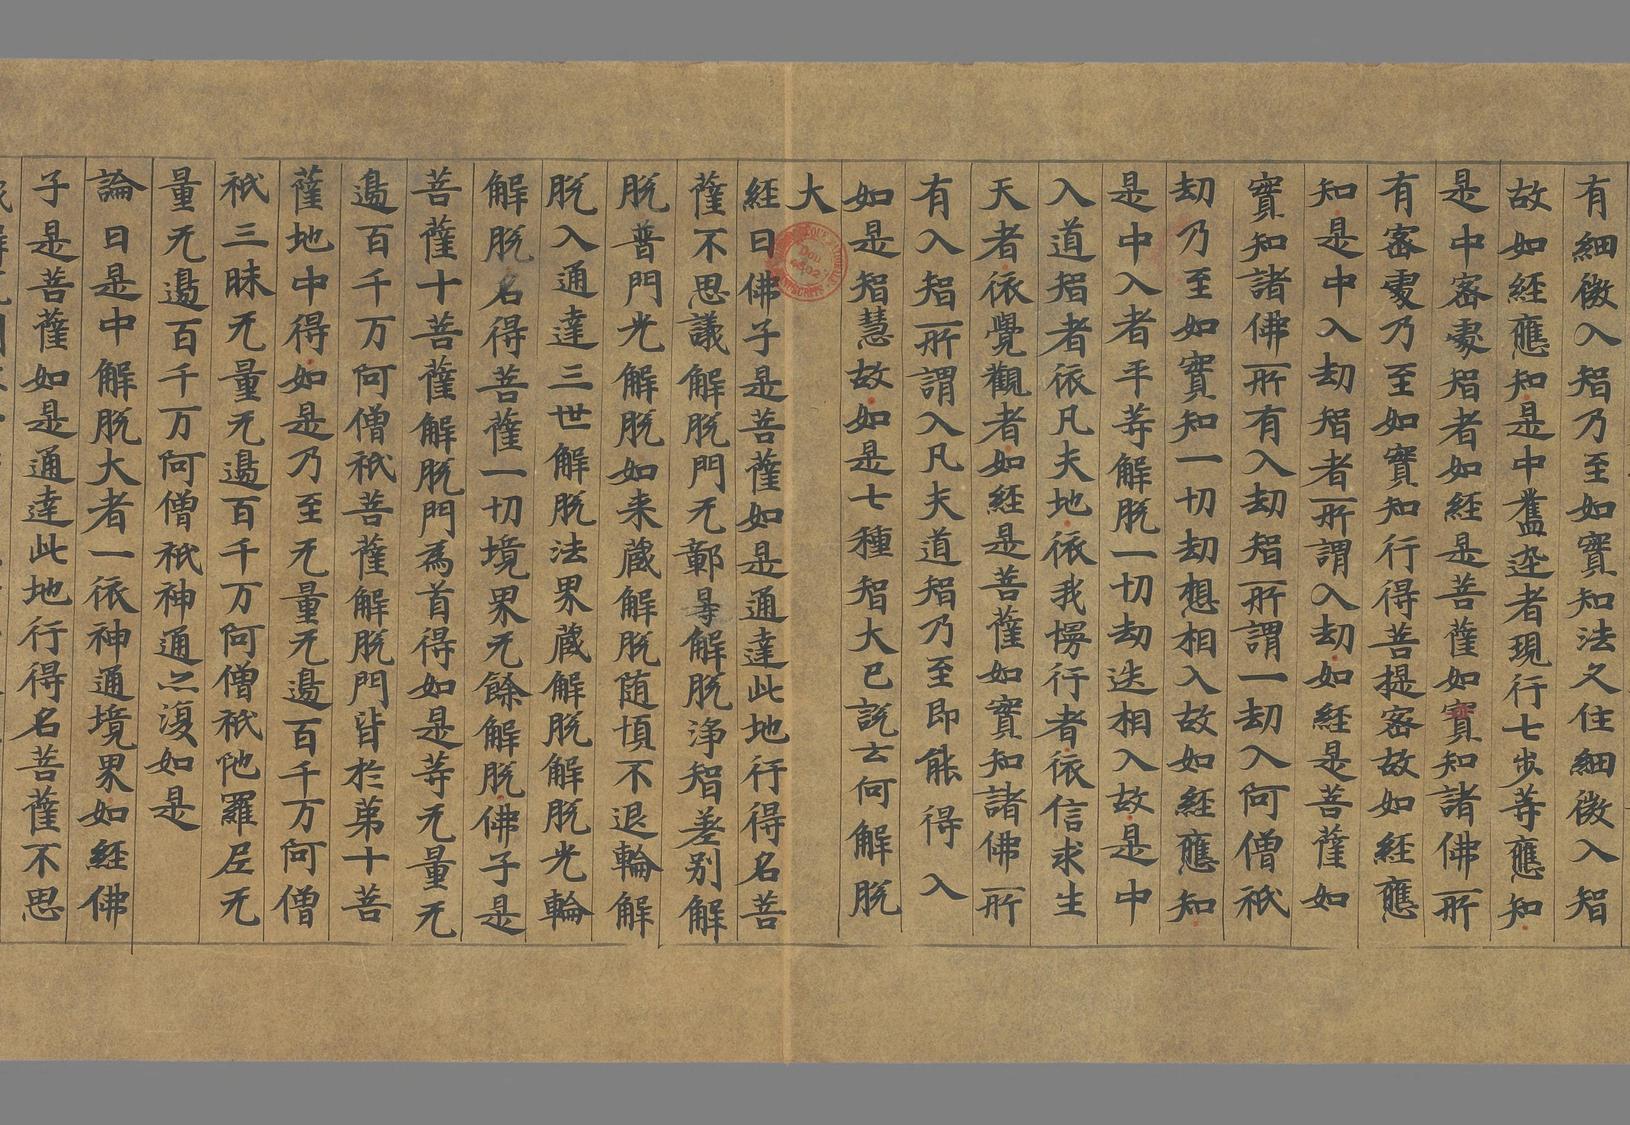 有細微入智乃至如實知法久住細微入智
故如經應知是中舊迹者現行七步等應知
是中密處智者如經是菩薩如實知諸佛所
有密處乃至如實知行得菩提密故如經應
知是中入劫智者所謂入劫如經是菩薩如
實知諸佛所有入劫智所謂一劫入阿僧祇
劫乃至如實知一切劫想相入故如經應知
是中入者平等解脫一切劫迭相入故是中
入道智者依凡夫地依我慢行者依信求生
天者依覺觀者如經是菩薩如實知諸佛所
有入智所謂入凡夫道智乃至即能得入
如是智慧故如是七種智大已說云何解脫
大
經曰佛子是菩薩如是通達此地行得名菩
薩不思議解脫門无鄣㝵解脫淨智差別解
脫普門光解脫如来蔵解脫随順不退輪解
脫入通達三世解脫法界蔵解脫解脫光輪
解脫名得菩薩一切境界无餘解脫佛子是
菩薩十菩薩解脫門為首得如是等无量无
邊百千万阿僧祇菩薩解脫門皆於第十菩
薩地中得如是乃至无量无邊百千万阿僧
祇三昧无量无邊百千万阿僧祇陀羅尼无
量无邊百千万阿僧祇神通亦復如是
論曰是中解脫大者一依神通境界如經佛
子是菩薩如是通達此地行得名菩薩不思